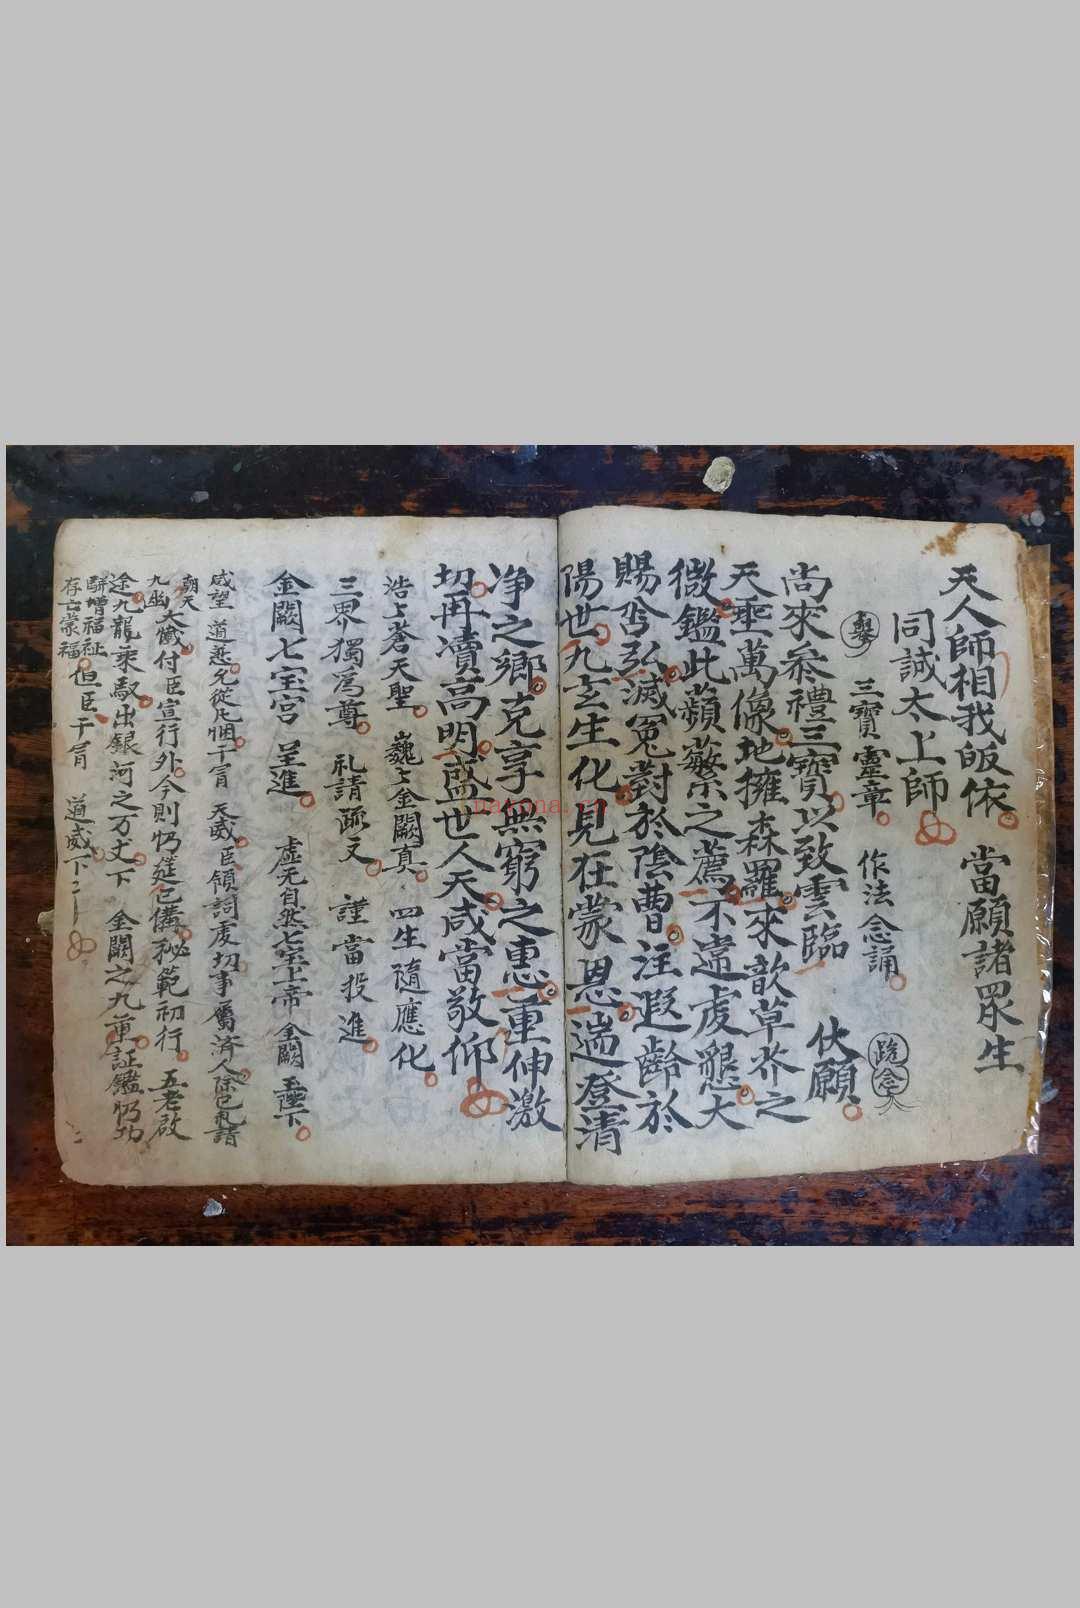 天人師相我皈依 當願諸眾生
同誠太上師
三寶靈章 作法念誦 跪念
尚來參禮三寶以致雲臨 伏願
天垂萬像地擁森羅來歆草芥之
微鑑此蘋蘩之薦不遺虔懇大
賜含弘滅冤對於陰曹注遐齡於
陽世九玄生化見在蒙恩遄登清
净之鄉克享無窮之惠重伸激
切再瀆高明盛世人天咸當敬仰
浩上蒼天聖 巍上金闕真 四生隨應化
三界獨為尊 礼請疏文 謹當投進
金闕七宝宮 呈進 虛无自然七宝上帝 金闕 玉陛下
咸望 道慈允從凡悃干冒 天威臣領詞虔切事屬済人除已礼請
朝天
九幽大懺付臣宣行外今則仍筵已備秘範初行 五老啟
途九龍乘馭出銀河之万丈下 金闕之九重証鑑仍功
駢增福祉
存亡蒙福但臣干冒 道威下